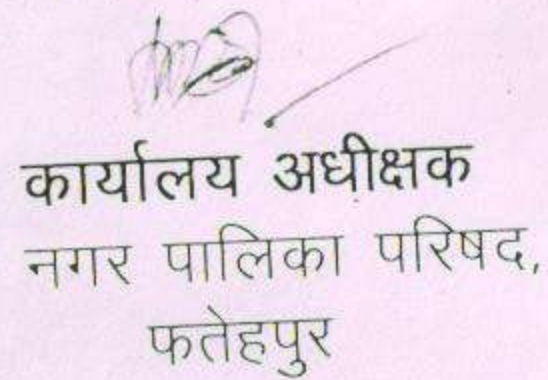 कार्यालय अधीक्षक
नगर पालिका परिषद,
फतेहपुर